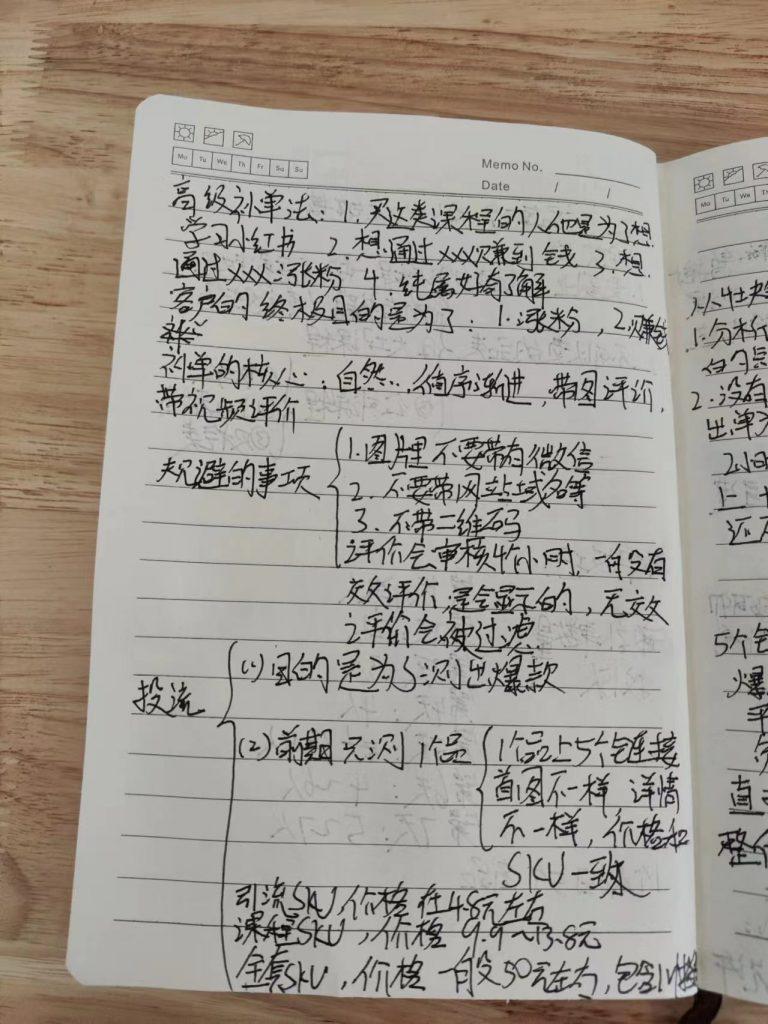 Memo No.
Mo Tu We Th Fr Sa Su
Date / /
高级补单法：1. 买这类课程的人他是为了想
学习小红书 2. 想通过xxx赚到钱 3. 想
通过xxx涨粉 4. 纯属好奇了解
客户的终极目的是为了：1. 涨粉，2. 赚钱
补单的核心：自然..，循序渐进，带图评价，
带视频评价
规避的事项
1. 图片里不要带有微信
2. 不要带网站域名等
3. 不带二维码
评价会审核4个小时，一般没有
效评价，是会显示的，无效
评价会被过滤
投流
(1) 目的是为了测出爆款
(2) 前期只测1个品
1个品上5个链接
首图不一样 详情
不一样，价格和
SKU一致
引流SKU，价格在4.8元左右
课程SKU，价格9.9~13.8元
全套SKU，价格一般50元左右，包含
Mo Tu We Th
1. 分析
2. 没有
出单
5个
爆
平
直
整个